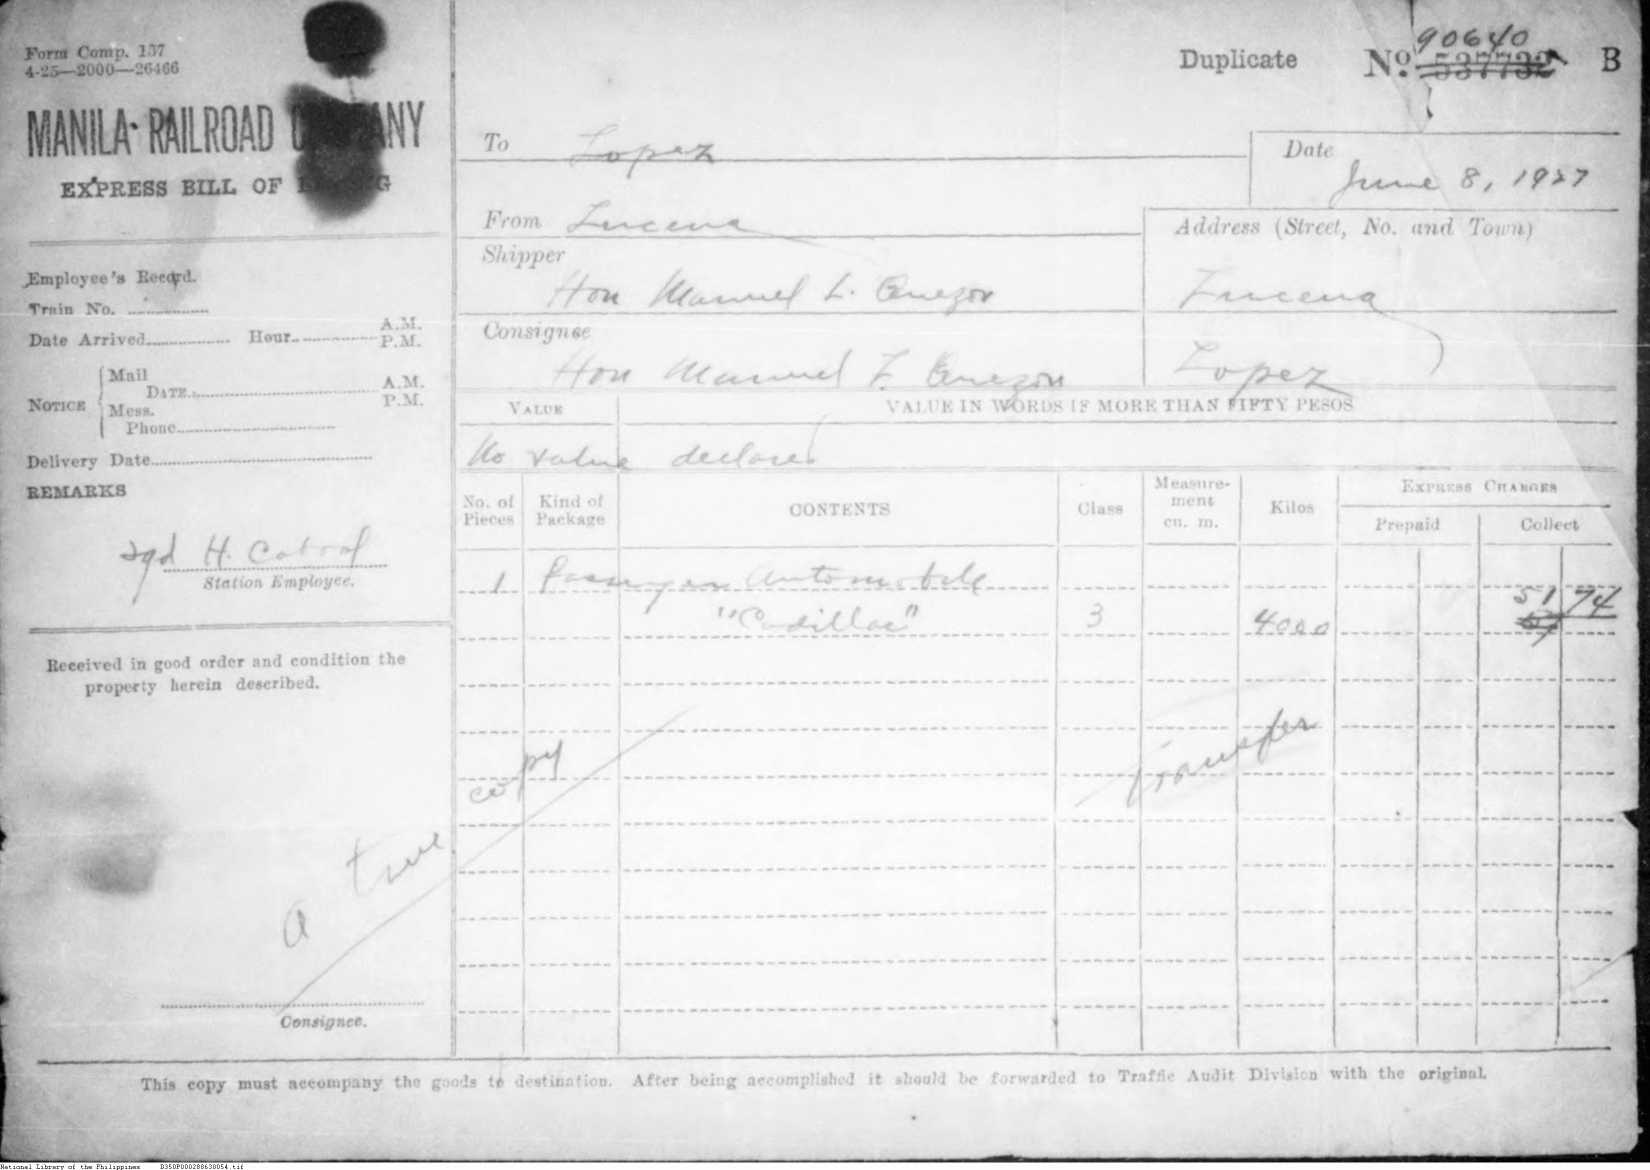 Form Comp. 137
4-25—2000—26466
MANILA RAILROAD COMPANY
EXPRESS BILL OF LADING
Employee's Record.
Train No.
Date Arrived Hour A.M. P.M.
NOTICE
Mail DATE A.M. P.M.
Mess. Phone
Delivery Date
REMARKS
sgd H. Cabral
Station Employee.
Received in good order and condition the
property herein described.
a true copy
Consignee.
Duplicate No. 537732 90640 B
To Lopez
Date June 8, 1927
From Lucena
Address (Street, No. and Town)
Shipper
Hon Manuel L. Quezon Lucena
Consignee
Hon Manuel L. Quezon Lopez
VALUE VALUE IN WORDS IF MORE THAN FIFTY PESOS
No value declared
No. of Pieces Kind of Package CONTENTS Class Measure-ment cu. m. Kilos EXPRESS CHARGES Prepaid Collect
1 Passenger Automobile
"Cadillac" 3 4000 51 74
Transfer
This copy must accompany the goods to destination. After being accomplished it should be forwarded to Traffic Audit Division with the original.
National Library of the Philippines B350P000288638054.tif